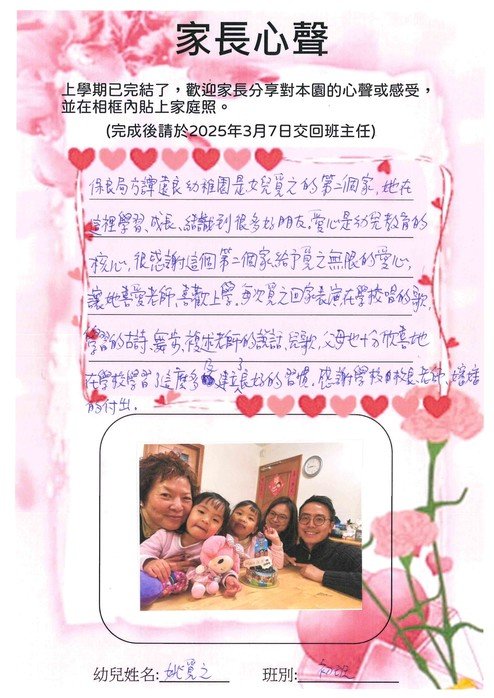 家長心聲
上學期已完結了，歡迎家長分享對本園的心聲或感受，
並在相框內貼上家庭照。
(完成後請於2025年3月7日交回班主任)
保良局方譚遠良幼稚園是女兒覓之的第二個家，她在
這裡學習、成長、結識到很多好朋友。愛心是幼兒教育的
核心，很感謝這個第二個家給予覓之無限的愛心，
讓她喜愛老師，喜歡上學，每次覓之回家表演在學校唱的歌、
學習的古詩、舞步、複述老師的說話、兒歌，父母也十分欣喜地
在學校學習了這麼多，建立良好的習慣，感謝學校校長、老師、嬸嬸
的付出。
幼兒姓名: 姚覓之 班別: 初班